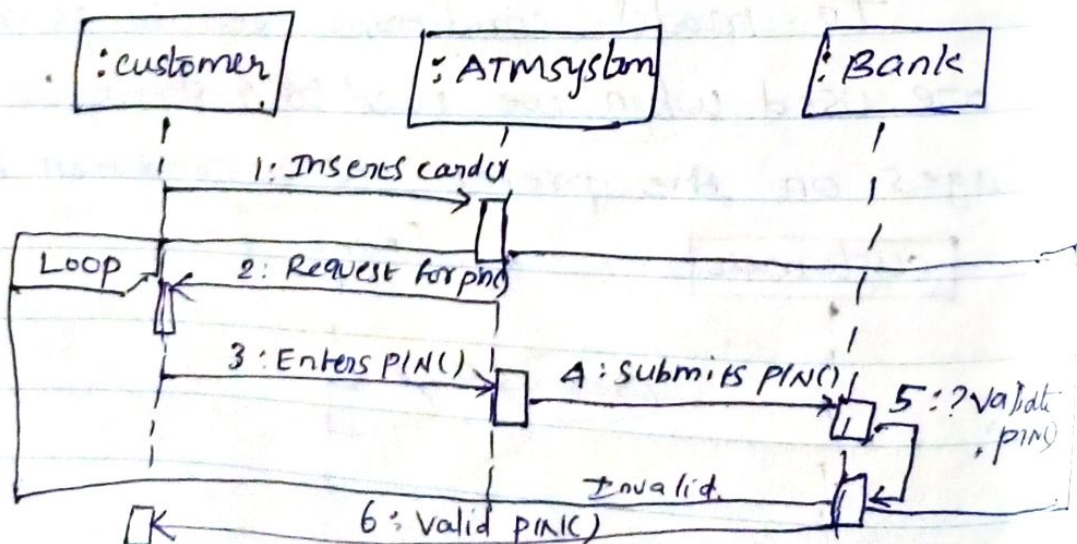 :customer
:ATMsystem
:Bank
1: Inserts card()
Loop
2: Request for pin()
3: Enters PIN()
4: Submits PIN()
5: ? Validate
pin()
Invalid.
6: Valid pin()